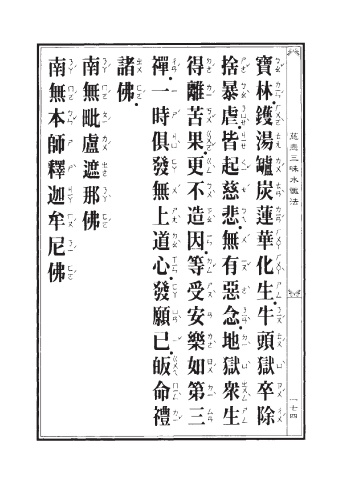 慈悲三昧水懺法
一七四
寶林。鑊湯罏炭蓮華化生。牛頭獄卒除
捨暴虐。皆起慈悲。無有惡念。地獄眾生
得離苦果。更不造因。等受安樂如第三
禪。一時俱發無上道心。發願已。皈命禮
諸佛。
南無毗盧遮那佛
南無本師釋迦牟尼佛